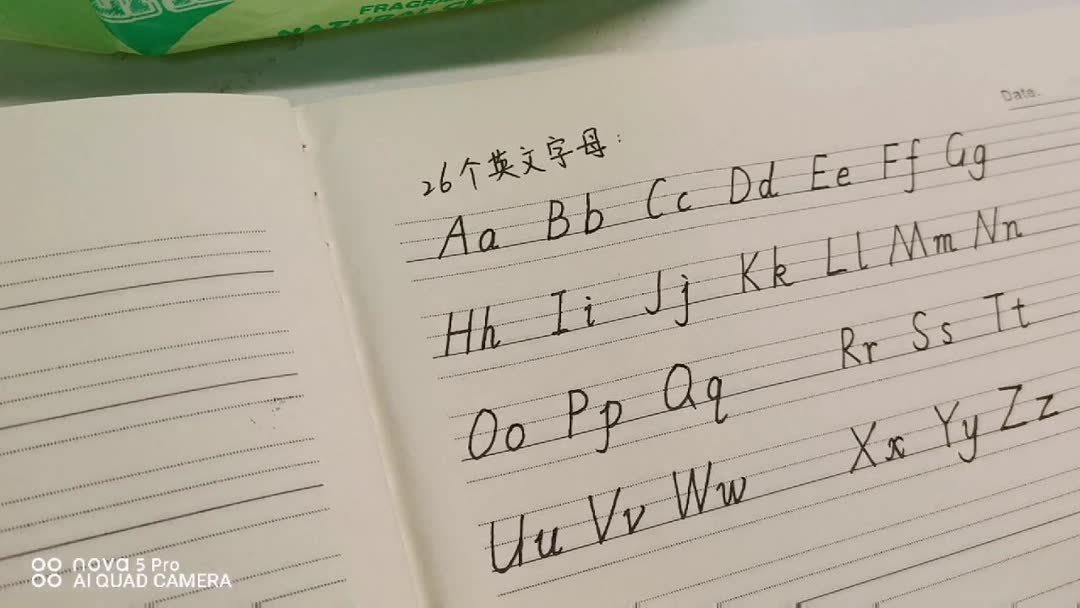 FRAGRAN
NATURAL CLE
Date.
26个英文字母:
Aa Bb Cc Dd Ee Ff Gg
Hh Ii Jj Kk Ll Mm Nn
Oo Pp Qq Rr Ss Tt
Uu Vv Ww Xx Yy Zz
nova 5 Pro
AI QUAD CAMERA